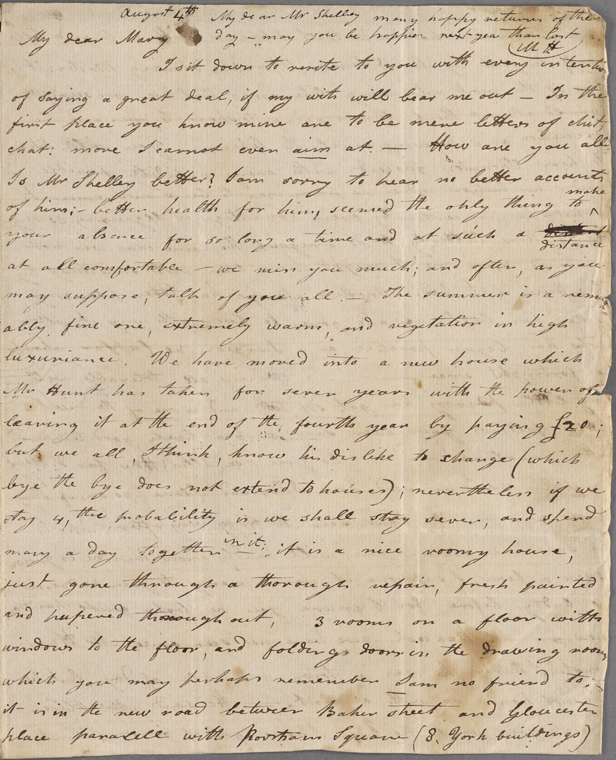 August 4th My dear Mr Shelley many happy returns of the
My dear Mary day – may you be happier next year than last
M H
I sit down to write to you with every intention
of saying a great deal, if my wits will bear me out – In the
first place you know mine are to be mere letters of chit,
chat: more I cannot even aim at. – How are you all
Is Mr Shelley better? I am sorry to hear no better accounts
of him; – better health for him, seemed the only thing to make
your absence for so long a time and at such a distance
at all comfortable – we miss you much; and often, as you
may suppose, talk of you all. – The summer is a remark
ably fine one, extremely warm, and vegetation in high
luxuriance. We have moved into a new house which
Mr Hunt has taken for seven years with the power of
leaving it at the end of the fourth year by paying £20;
but we all, I think, know his dislike to change (which
bye the bye does not extend to houses); nevertheless if we
stay 4, the probability is we shall stay seven, and spend
many a day together in it; it is a nice roomy house,
just gone through a thorough repair, fresh painted
and papered throughout, 3 rooms on a floor with
windows to the floor, and folding doors in the drawing room
which you may perhaps remember I am no friend to;
it is in the new road between Baker street and Gloucester
place paralell with Portman Square (8. York buildings)